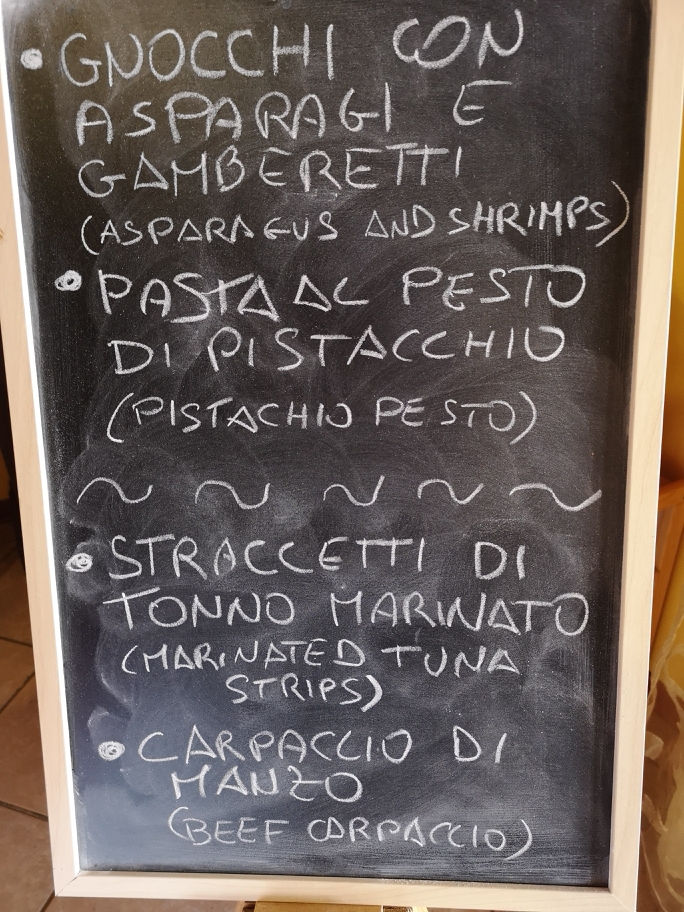 • GNOCCHI CON
ASPARAGI E
GAMBERETTI
(ASPARAGUS AND SHRIMPS)
• PASTA AL PESTO
DI PISTACCHIO
(PISTACHIO PESTO)
~ ~ ~ ~ ~
• STRACCETTI DI
TONNO MARINATO
(MARINATED TUNA
STRIPS)
• CARPACCIO DI
MANZO
(BEEF CARPACCIO)